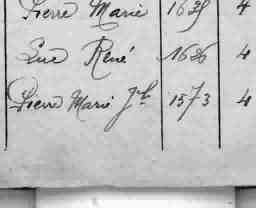 Pierre Marie 1635 4
Luc René 1626 4
Pierre Marie Jh 1573 4